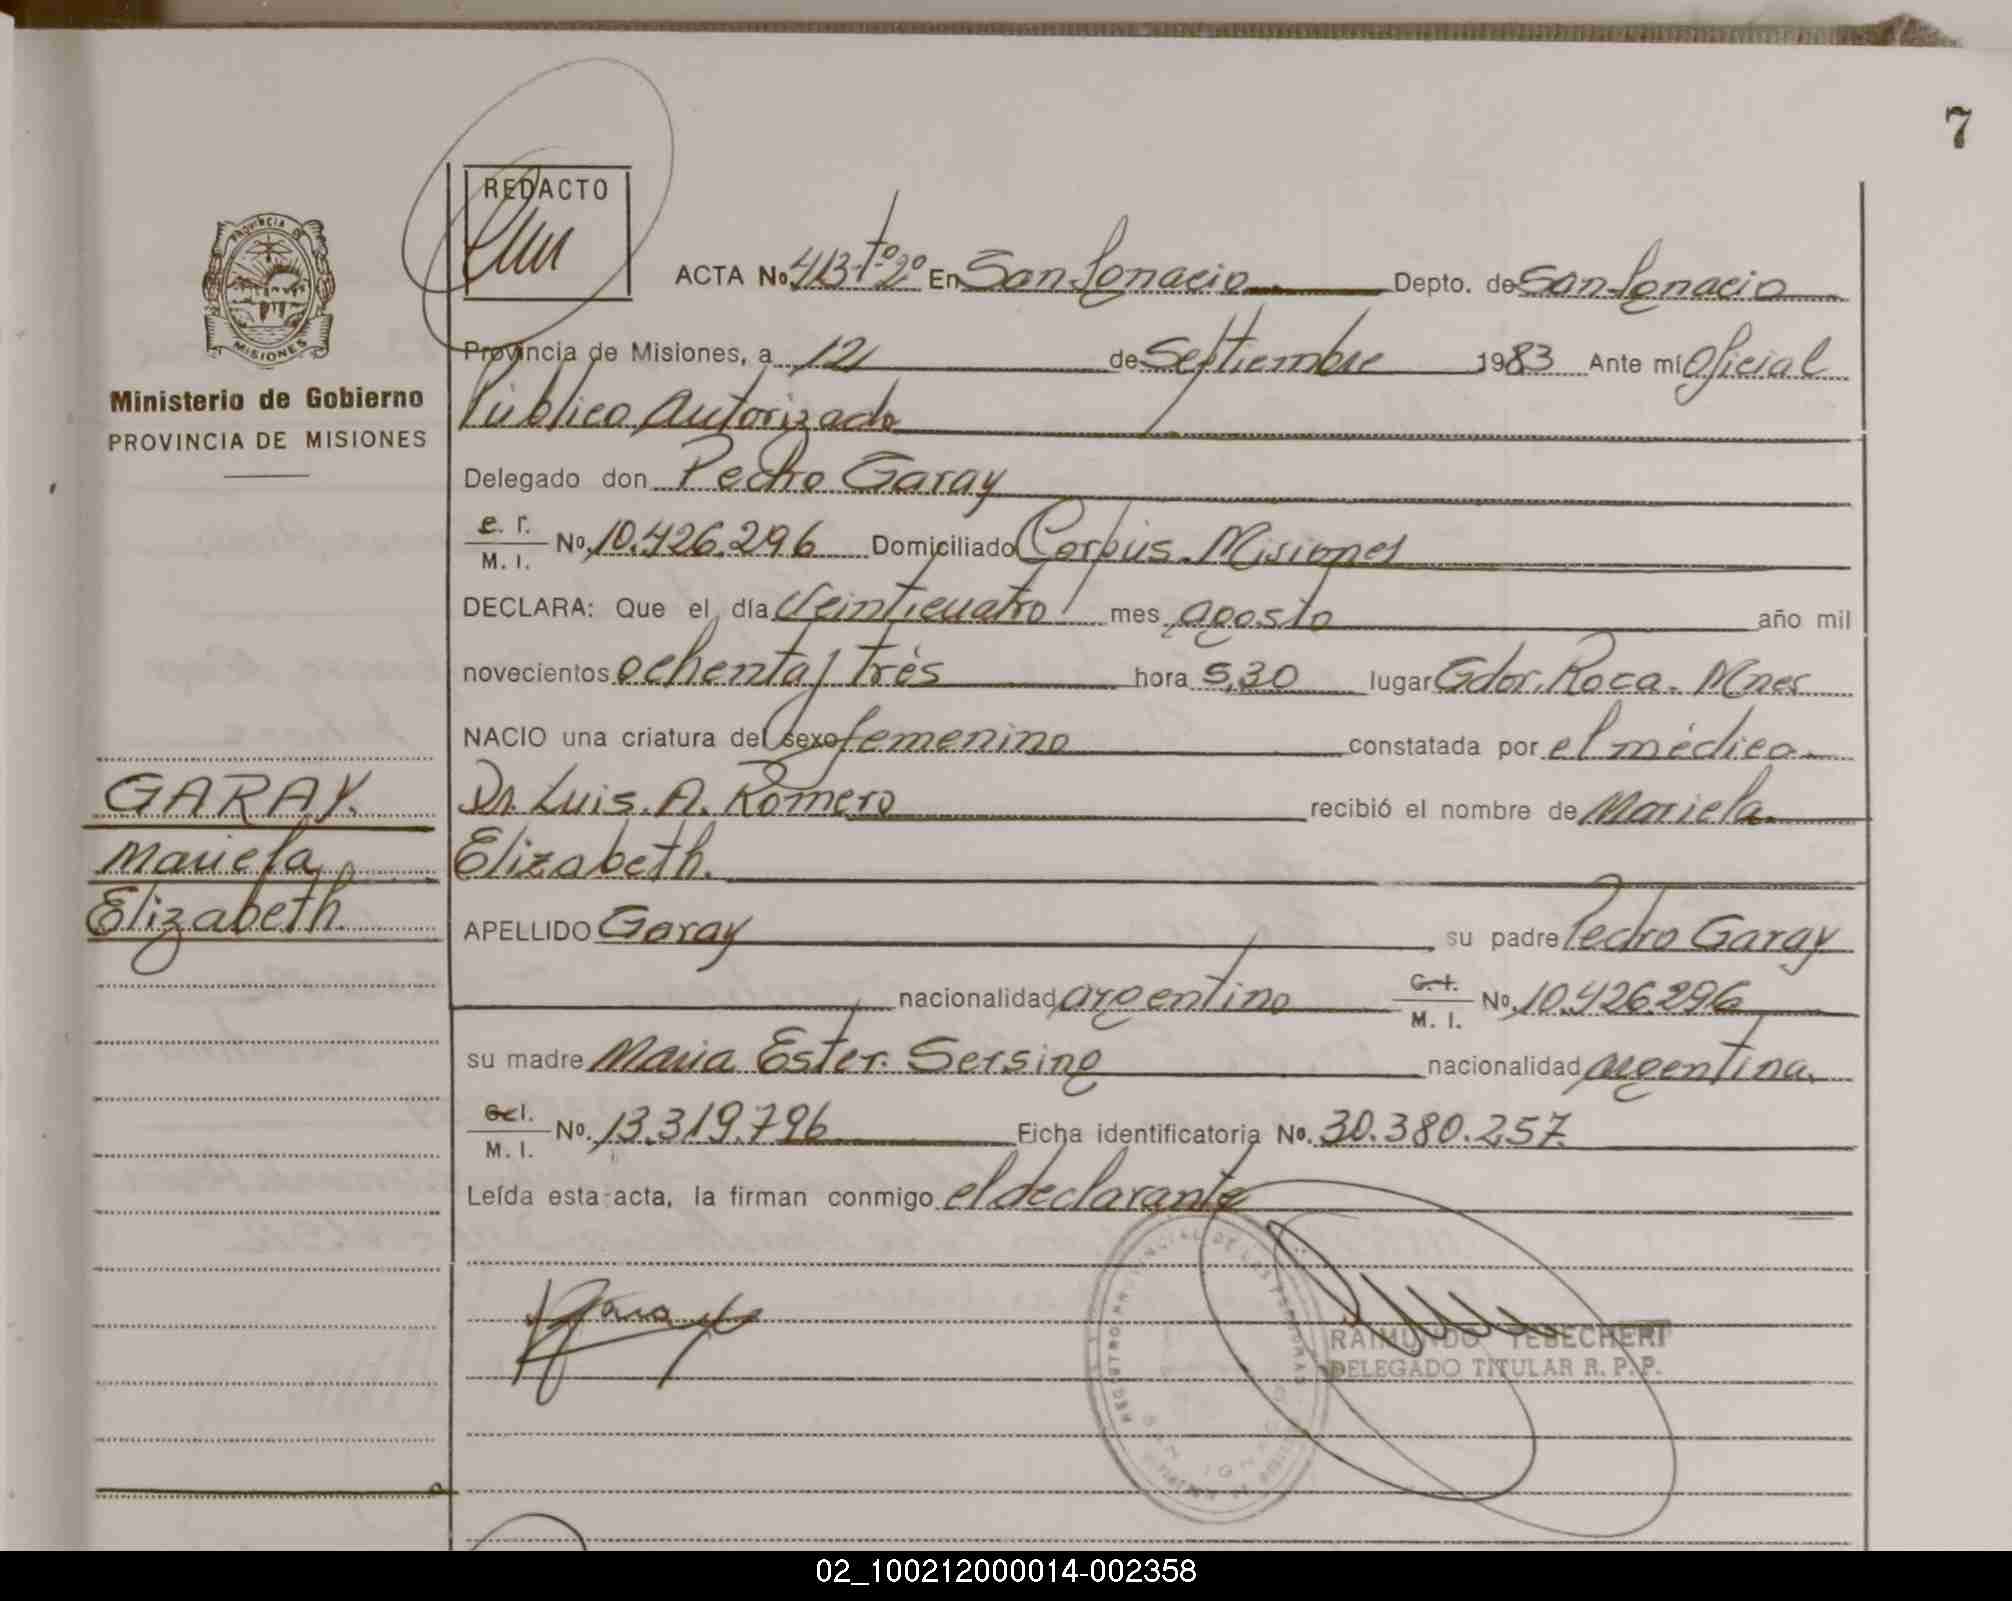 7
REDACTO
PROVINCIA DE
MISIONES
Ministerio de Gobierno
PROVINCIA DE MISIONES
ACTA No. 413-tº2º En San Ignacio Depto. de San Ignacio
Provincia de Misiones, a 12 de Septiembre 1983 Ante mí Oficial
Público Autorizado
Delegado don Pedro Garay
C. I. / M. I. No. 10.426.296 Domiciliado Corpus. Misiones
DECLARA: Que el día Veinticuatro mes agosto año mil
novecientos ochenta y tres hora 5,30 lugar Gdor. Roca. Mnes
NACIO una criatura del sexo femenino constatada por el médico
Dr. Luis. A. Romero recibió el nombre de Mariela
Elizabeth.
GARAY.
Mariela
Elizabeth
APELLIDO Garay su padre Pedro Garay
nacionalidad argentino C. I. / M. I. No. 10.426.296
su madre Maria Ester. Sersing nacionalidad argentina.
C. I. / M. I. No. 13.319.796 Ficha identificatoria No. 30.380.257
Leída esta acta, la firman conmigo el declarante
REGISTRO PROVINCIAL DE LAS PERSONAS
SAN IGNACIO
RAIMUNDO TEBECHERI
DELEGADO TITULAR R. P. P.
02_100212000014-002358